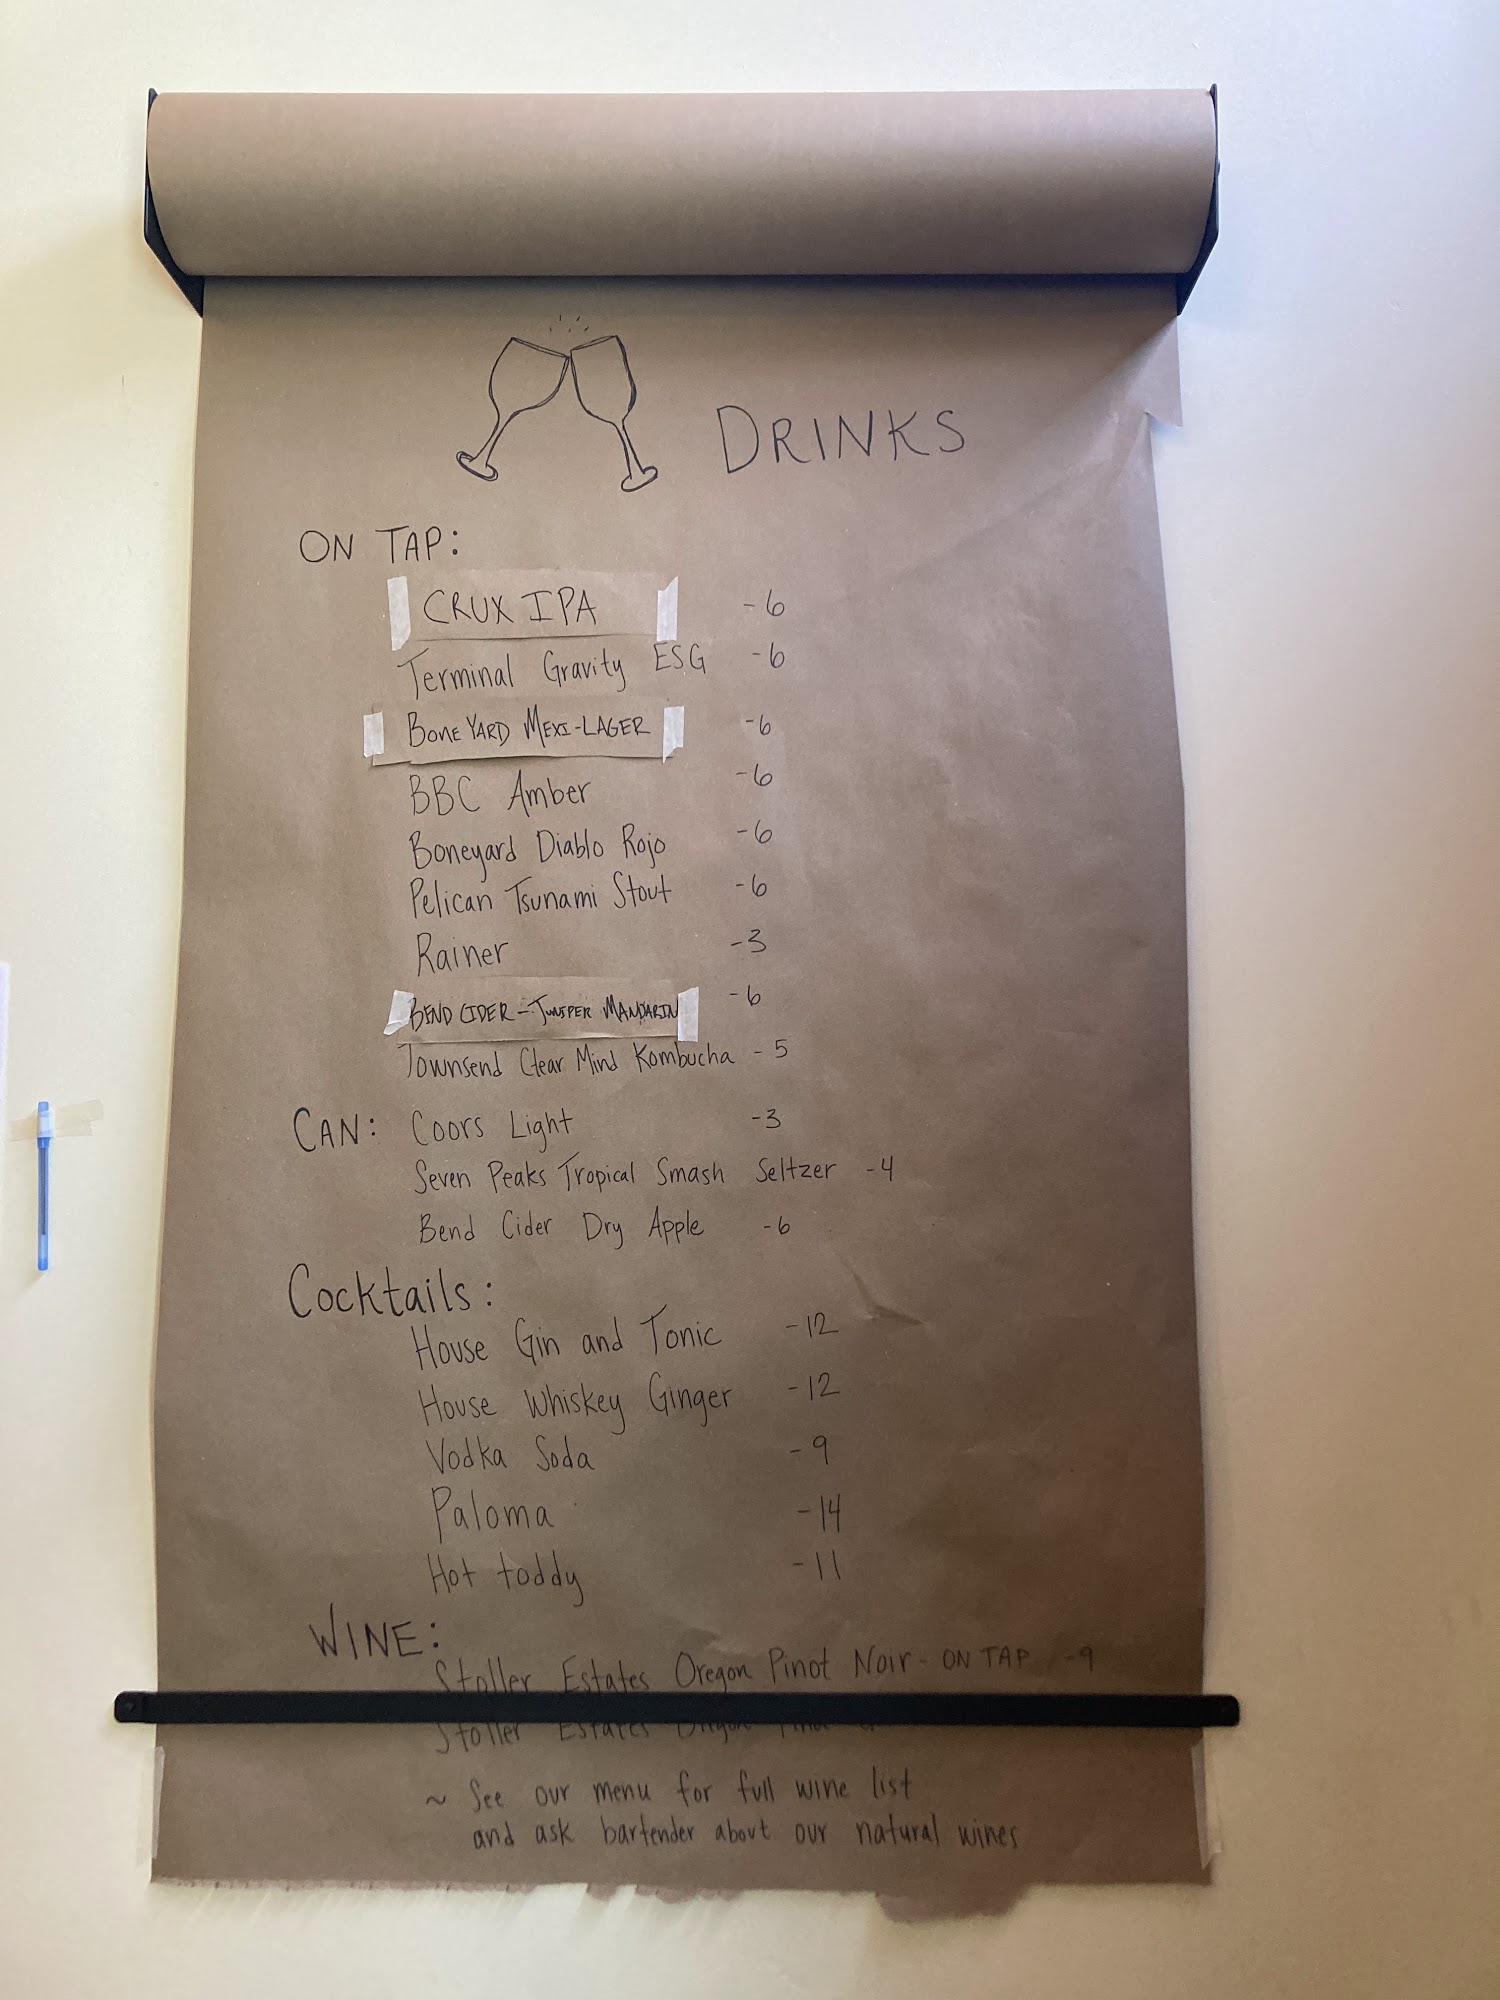 DRINKS
ON TAP:
CRUX IPA -6
Terminal Gravity ESG -6
BONEYARD MEXI-LAGER -6
BBC Amber -6
Boneyard Diablo Rojo -6
Pelican Tsunami Stout -6
Rainer -3
BEND CIDER - JUNIPER MANDARIN -6
Townsend Clear Mind Kombucha - 5
CAN: Coors Light -3
Seven Peaks Tropical Smash Seltzer -4
Bend Cider Dry Apple -6
Cocktails:
House Gin and Tonic -12
House Whiskey Ginger -12
Vodka Soda -9
Paloma -14
Hot toddy -11
WINE:
Stoller Estates Oregon Pinot Noir - ON TAP -9
Stoller Estates Oregon Pinot
~ See our menu for full wine list
and ask bartender about our natural wines